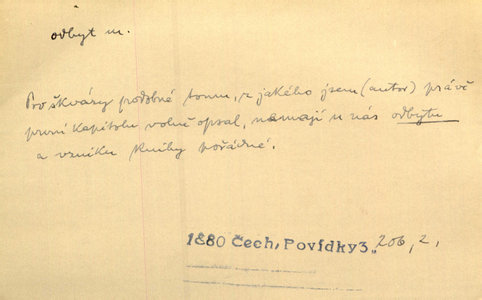 odbyt m.
Pro škváry podobné tomu, z jakého jsem (autor) právě
první kapitolu volně opsal, nemají u nás odbytu
a vzniku knihy pořádné.
1880 Čech, Povídky 3., 206, 2,